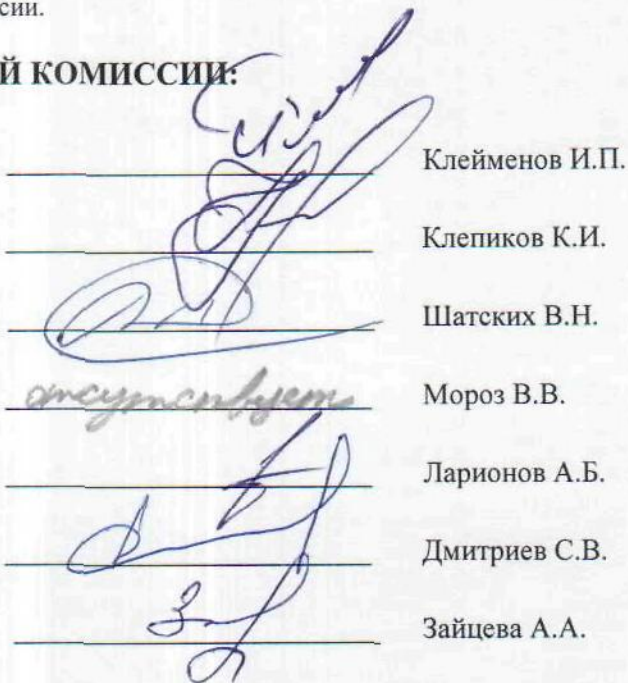 сии.
Й КОМИССИИ:
Клейменов И.П.
Клепиков К.И.
Шатских В.Н.
отсутствует Мороз В.В.
Ларионов А.Б.
Дмитриев С.В.
Зайцева А.А.